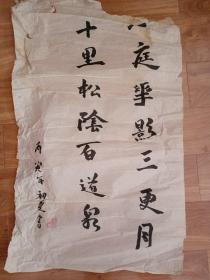 庭華影三更月
十里松陰百道泉
丙寅年初夏書